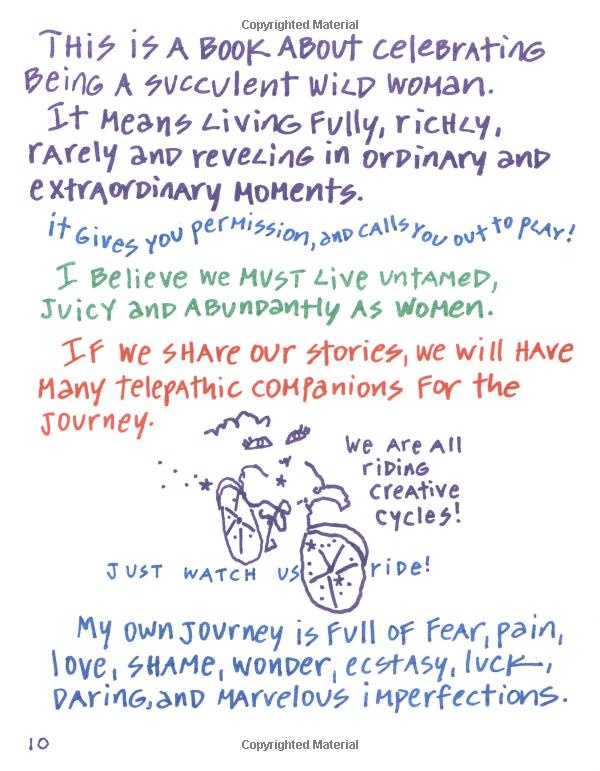 Copyrighted Material
THIS iS A BOOK ABOUT celeBrATiNG
BeiNG A SUCCULENT WiLD WOMAN.
It MeANS LiViNG FULLY, riCHLY,
rArely and reveLiNG in OrDinAry and
extrAOrDiNARY MOMeNTS.
it Gives you perMission, and CALLS You OUT to PLAY!
I Believe we MUST Live UntAMeD,
JUiCY and ABUnDAntly As WOMeN.
IF We SHAre our Stories, we will HAVE
MANY telepathic COMPANiONS FOr the
JOUrney.
We Are All
riDiNG
creAtive
cycles!
JUST WATCH US riDe!
MY OWN JOUrney iS FULL OF FeAr, pAin,
love, SHAMe, WONDer, ecstAsy, lUCK,
DAriNG, and MArveLOUS iMperFectiONS.
10
Copyrighted Material